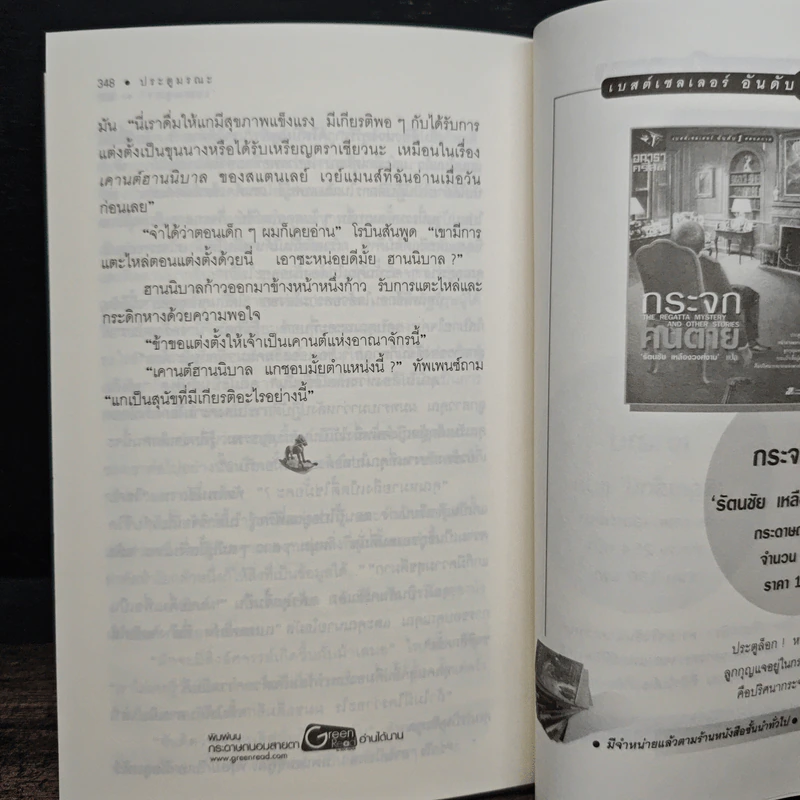 348 • ประตูมรณะ
มัน "นี่เราดื่มให้แกมีสุขภาพแข็งแรง มีเกียรติพอ ๆ กับได้รับการ
แต่งตั้งเป็นขุนนางหรือได้รับเหรียญตราเชียวนะ เหมือนในเรื่อง
เคานต์ฮานนิบาล ของสแตนเลย์ เวย์แมนส์ที่ฉันอ่านเมื่อวัน
ก่อนเลย"
"จำได้ว่าตอนเด็ก ๆ ผมก็เคยอ่าน" โรบินสันพูด "เขามีการ
แตะไหล่ตอนแต่งตั้งด้วยนี่ เอาซะหน่อยดีมั้ย ฮานนิบาล ?"
ฮานนิบาลก้าวออกมาข้างหน้าหนึ่งก้าว รับการแตะไหล่และ
กระดิกหางด้วยความพอใจ
"ข้าขอแต่งตั้งให้เจ้าเป็นเคานต์แห่งอาณาจักรนี้"
"เคานต์ฮานนิบาล แกชอบมั้ยตำแหน่งนี้ ?" ทัพเพนซ์ถาม
"แกเป็นสุนัขที่มีเกียรติอะไรอย่างนี้"
พิมพ์บน
กระดาษถนอมสายตา Green Read อ่านได้นาน
www.greenread.com
เบสต์เซลเลอร์ อันดับ
อกาธา
คริสตี
กระจก
THE REGATTA MYSTERY
AND OTHER STORIES
คนตาย
'รัตนชัย เหลืองวงศ์งาม' แปล
กระจ
'รัตนชัย เหลื
กระดาษถ
จำนวน
ราคา 1
ประตูล็อก !
ลูกกุญแจอยู่ในกร
คือปริศนากระจ
• มีจำหน่ายแล้วตามร้านหนังสือชั้นนำทั่วไป •